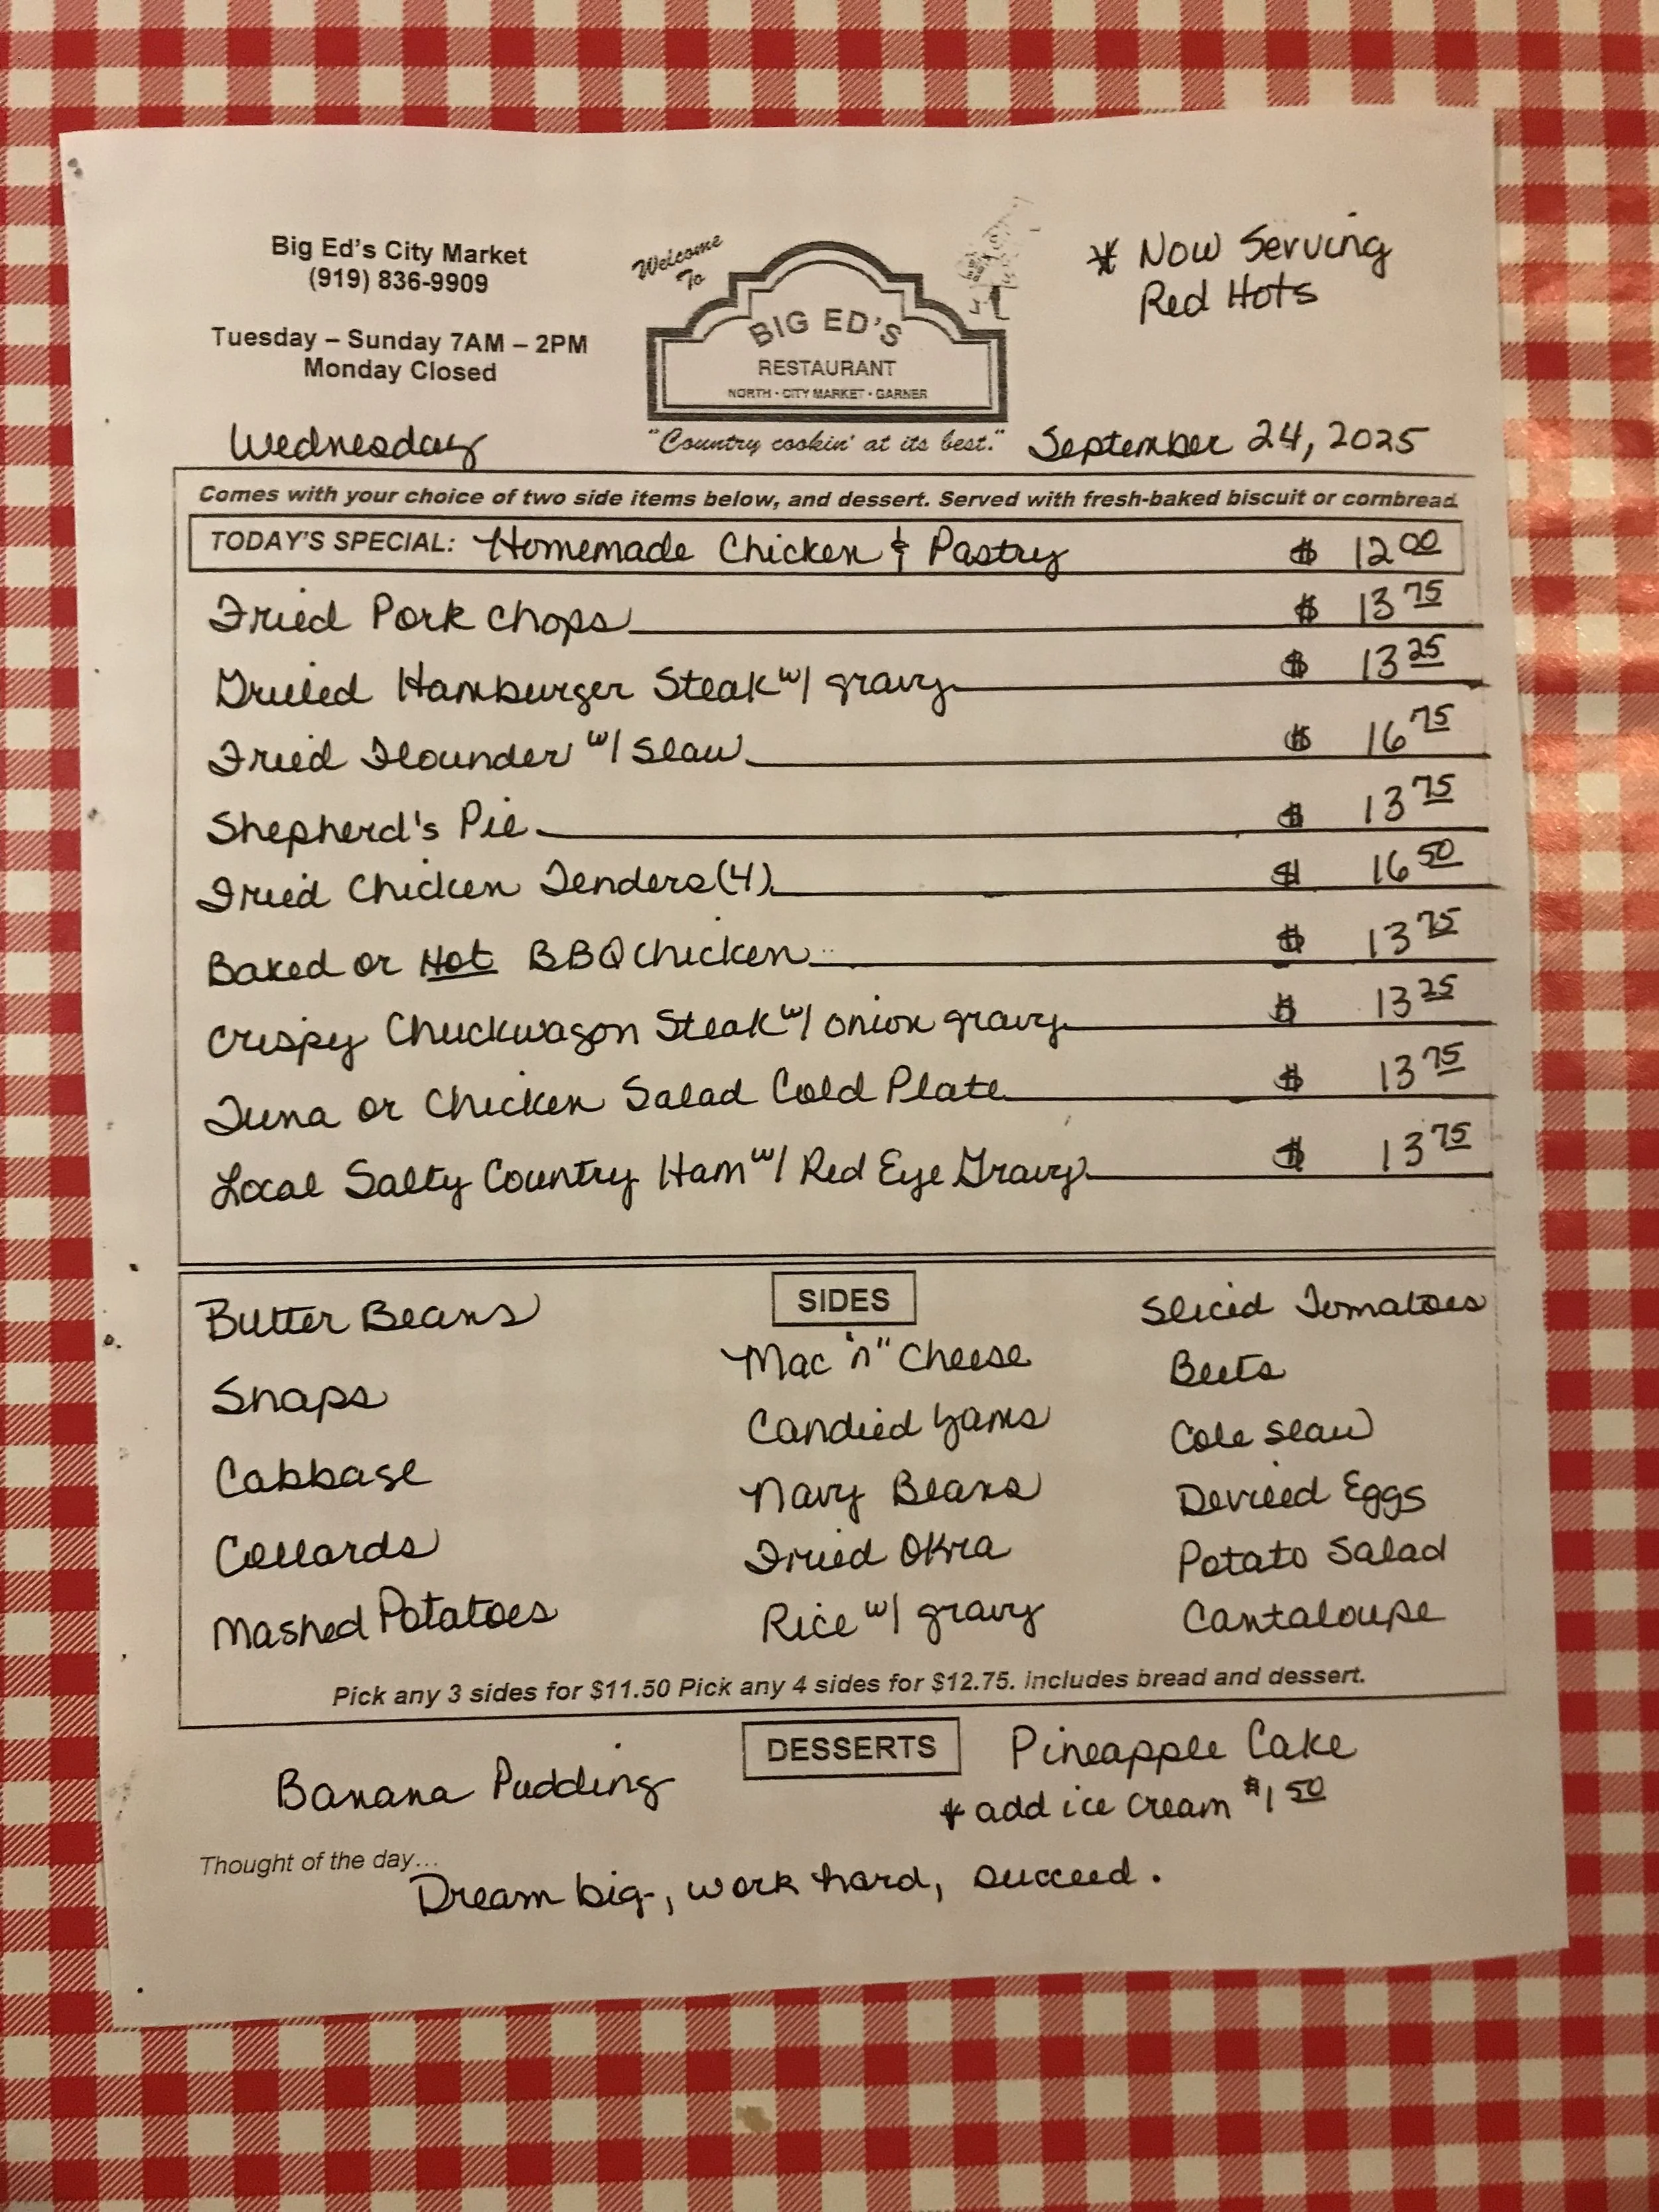 Big Ed's City Market
(919) 836-9909
Tuesday – Sunday 7AM – 2PM
Monday Closed
Welcome
To
BIG ED'S
RESTAURANT
NORTH · CITY MARKET · GARNER
"Country cookin' at its best."
* Now Serving
Red Hots
Wednesday
September 24, 2025
Comes with your choice of two side items below, and dessert. Served with fresh-baked biscuit or cornbread.
TODAY'S SPECIAL: Homemade Chicken & Pastry $ 12 00
Fried Pork Chops $ 13 75
Grilled Hamburger Steak w/ gravy $ 13 25
Fried Flounder w/ Slaw $ 16 75
Shepherd's Pie $ 13 75
Fried Chicken Tenders (4) $ 16 50
Baked or Hot BBQ Chicken $ 13 75
Crispy Chuckwagon Steak w/ onion gravy $ 13 25
Tuna or Chicken Salad Cold Plate $ 13 75
Local Salty Country Ham w/ Red Eye Gravy $ 13 75
SIDES
Butter Beans
Snaps
Cabbage
Collards
Mashed Potatoes
Mac "n" Cheese
Candied Yams
Navy Beans
Fried Okra
Rice w/ gravy
Sliced Tomatoes
Beets
Cole Slaw
Devilled Eggs
Potato Salad
Cantaloupe
Pick any 3 sides for $11.50 Pick any 4 sides for $12.75. Includes bread and dessert.
DESSERTS
Banana Pudding
Pineapple Cake
* add ice cream $1 50
Thought of the day...
Dream big, work hard, succeed.